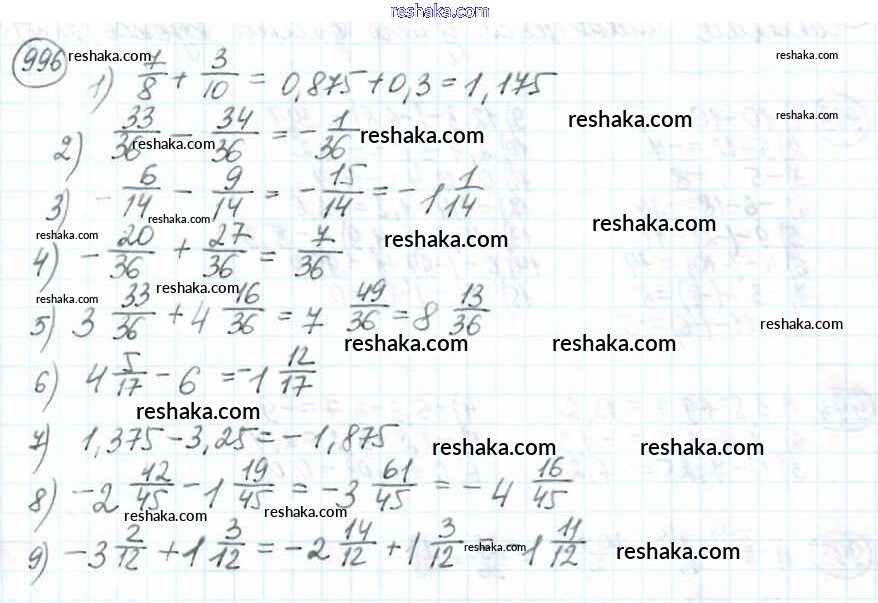 reshaka.com
996
1) 7/8 + 3/10 = 0,875 + 0,3 = 1,175
reshaka.com reshaka.com
reshaka.com
2) 33/36 - 34/36 = - 1/36
reshaka.com reshaka.com reshaka.com
3) - 6/14 - 9/14 = - 15/14 = - 1 1/14
reshaka.com reshaka.com
4) - 20/36 + 27/36 = 7/36
reshaka.com reshaka.com
5) 3 33/36 + 4 16/36 = 7 49/36 = 8 13/36
reshaka.com reshaka.com reshaka.com
reshaka.com reshaka.com
6) 4 5/17 - 6 = - 1 12/17
reshaka.com
7) 1,375 - 3,25 = - 1,875
reshaka.com reshaka.com
8) - 2 42/45 - 1 19/45 = - 3 61/45 = - 4 16/45
reshaka.com reshaka.com
9) - 3 2/12 + 1 3/12 = - 2 14/12 + 1 3/12 = - 1 11/12
reshaka.com reshaka.com